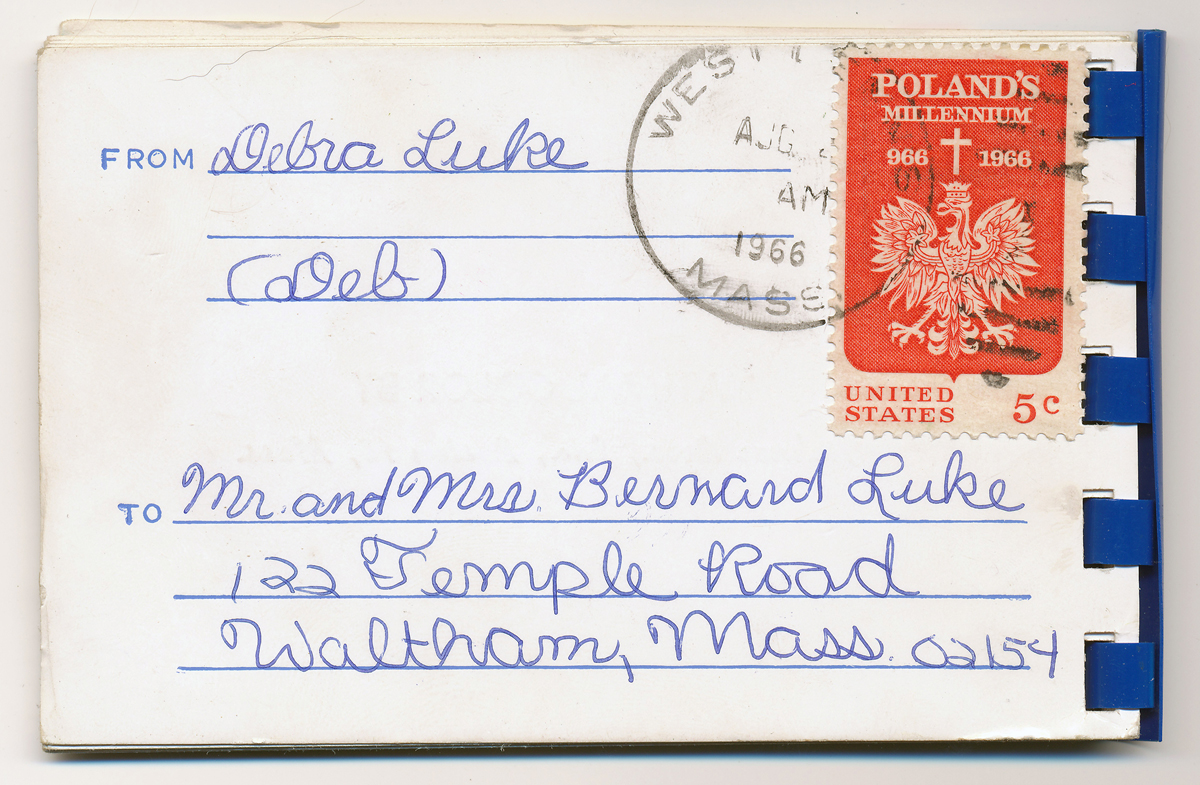 FROM Debra Luke
(Deb)
AUG
AM
1966
MASS
POLAND'S
MILLENNIUM
966 1966
UNITED
STATES 5c
TO Mr. and Mrs. Bernard Luke
122 Temple Road
Waltham, Mass. 02154